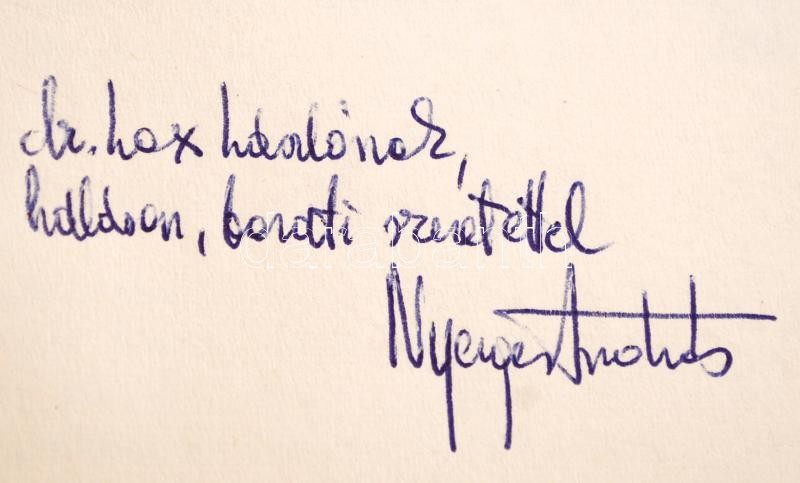 dr. Lax Lászlónak,
hálásan, baráti szeretettel
Nyerges András